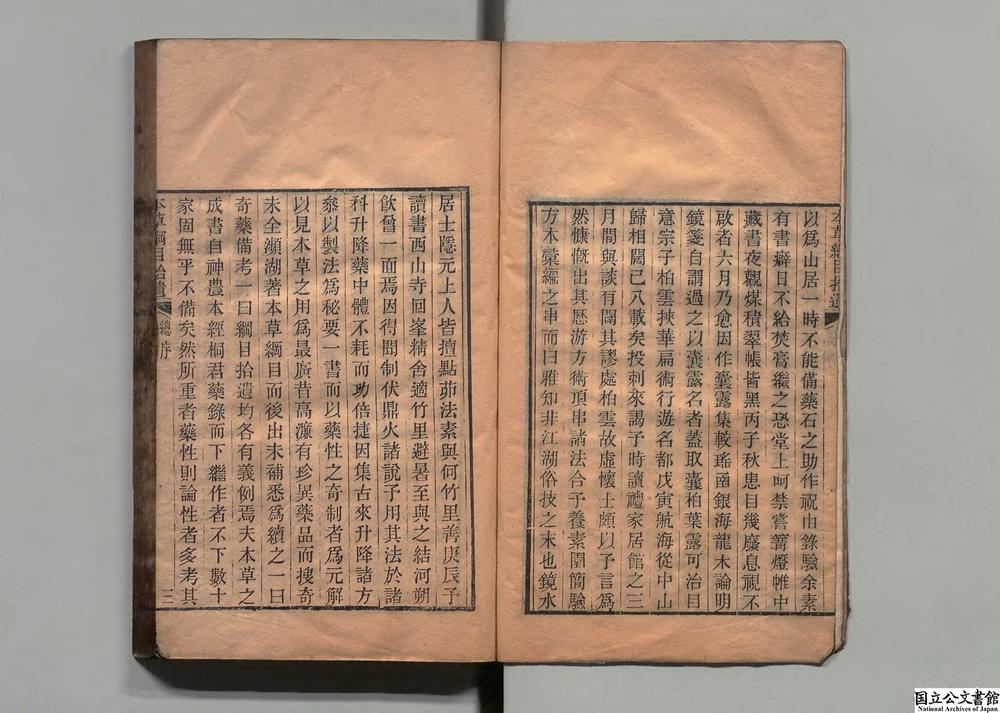 以爲山居一時不能備藥石之助作祝由錄驗余素
有書癖日不給焚膏繼之恐堂上呵禁嘗篝燈帷中
藏書夜觀煤積翠帳皆黑丙子秋患目幾廢息視不
啟者六月乃愈因作囊露集較瑤函銀海龍木論明
鏡箋自謂過之以囊露名者蓋取囊柏葉露可治目
意宗子柏雲挾華扁術行遊名都戊寅航海從中山
歸相闊已八載矣投刺來謁予時讀禮家居館之三
月間與談有闢其謬處柏雲故虛懷士頗以予言爲
然慷慨出其歷游方術頂串諸法合予養素園簡驗
方木彙編之串而曰雅知非江湖俗技之末也鏡水
本草綱目拾遺
本草綱目拾遺 總序 三
居士隱元上人皆擅點茆法素與何竹里善庚辰予
讀書西山寺回峯精舍適竹里避暑至與之結河朔
飲曾一面焉因得聞制伏鼎火諸說予用其法於諸
科升降藥中體不耗而功倍捷因集古來升降諸方
叅以製法爲秘要一書而以藥性之奇制者爲元解
以見本草之用爲最廣昔高濂有珍異藥品而搜奇
未全瀕湖著本草綱目而後出未補悉爲續之一曰
奇藥備考一曰綱目拾遺均各有義例焉夫本草之
成書自神農本經桐君藥錄而下繼作者不下數十
家固無乎不備矣然所重者藥性則論性者多考其
国立公文書館
National Archives of Japan